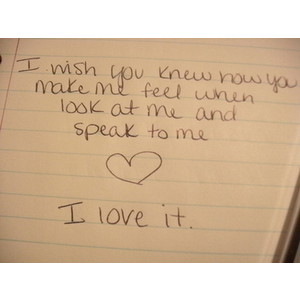 I wish you knew how you
make me feel when
look at me and
speak to me
I love it.